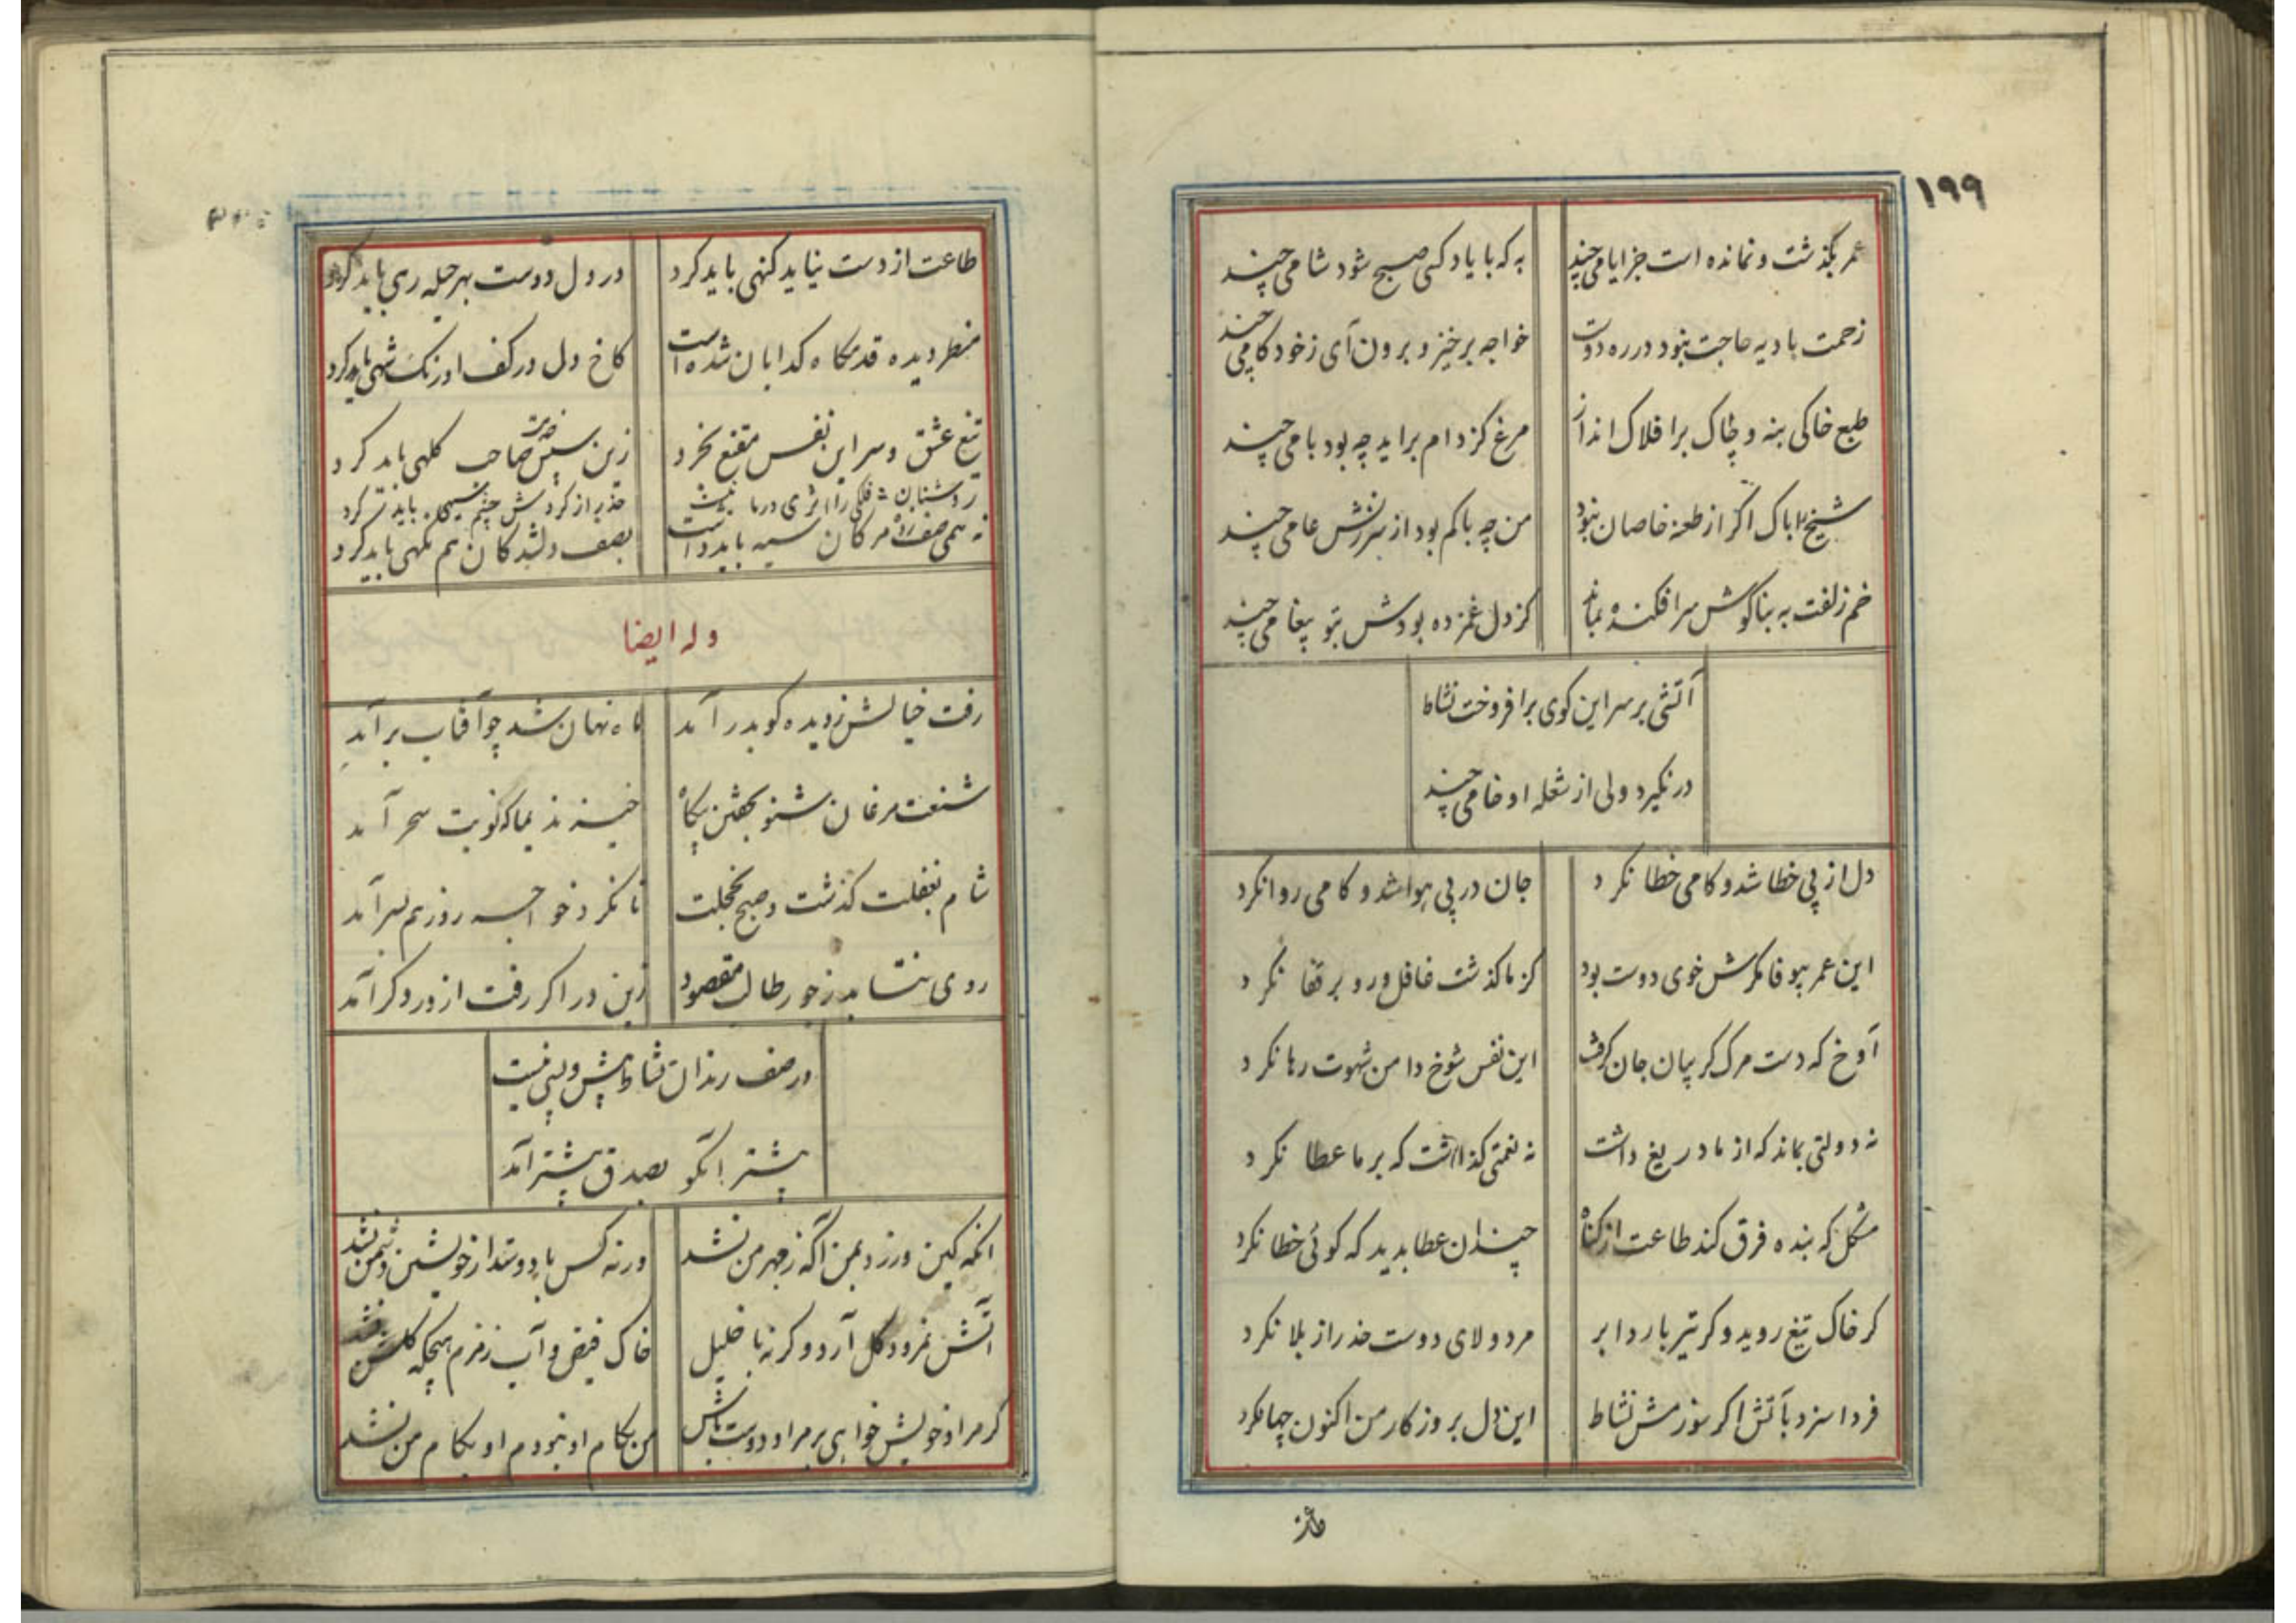 ۱۹۹
عمر بگذشت و نمانده است جز ایامی چند
به که با یاد کسی صبح شود شامی چند
زحمت بادیه حاجت نبود در ره دوست
خواجه برخیز و برون آی ز خود کامی چند
طبع خاکی بنه و چاک بر افلاک انداز
مرغ کز دام برآید چه بود بامی چند
شیخ را باک اکر از طعنه خاصان نبود
من چه باکم بود از سرزنش عامی چند
خم زلفت به بناکوش سرافکنده بماند
کز دل غمزده بودش بتو پیغامی چند
آتشی بر سر این کوی برافروخت نشاط
در نکیرد ولی از شعله او خامی چند
دل از پی خطا شد و کامی خطا نکرد
جان در پی هوا شد و کامی روا نکرد
این عمر بیوفا مکرش خوی دوست بود
کز ما کذشت غافل و رو بر قفا نکرد
آوخ که دست مرک کریبان جان کرفت
این نفس شوخ دامن شهوت رها نکرد
نه دولتی بماند که از ما دریغ داشت
نه نعمتی کذاشت که بر ما عطا نکرد
مشکل که بنده فرق کند طاعت از کناه
چندان عطا بدید که کوئی خطا نکرد
کر خاک تیغ روید و کر تیر بارد ابر
مرد ولای دوست حذر از بلا نکرد
فردا سزد بآتش اکر سوزمش نشاط
این دل بروزکار من اکنون چها نکرد
طاعت از دست نیاید کنهی باید کرد
در دل دوست بهر حیله رهی باید کرد
منظر دیده قدمکاه کدایان شده است
کاخ دل در کف اورنک شهی باید کرد
تیغ عشق و سر این نفس مقنع بخرد
زین سپس خدمت صاحب کلهی باید کرد
روشنان فلکی را اثری در ما نیست
حذر از کردش چشم سیهی باید کرد
نه همین صف زده مژکان سیه باید داشت
بصف دلشدکان هم نکهی باید کرد
وله ایضا
رفت خیالش ز دیده کو بدر آمد
ماه نهان شد چو آفتاب برآمد
شنعت مرغان شنو بکفتن بیکاه
خیز ندیما که نوبت سحر آمد
شام بغفلت کذشت و صبح بخجلت
تا نکرد خواجه روز هم بسر آمد
روی نتتابد ز خور طالب مقصود
زین در اکر رفت از در دکر آمد
در صف رندان نشاط پیش و پسی نیست
پیشتر آنکو بصدق پیشتر آمد
آنکه کین ورزد بمن آکه ز مهر من نشد
ورنه کس با دوستدار خویشتن دشمن نشد
آتش نمرود کل آرد و کرنه با خلیل
خاک فیض و آب زمزم هیچکه کلشن نشد
کر مراد خویش خواهی بر مراد دوست باش
من بکام او نبودم او بکام من نشد